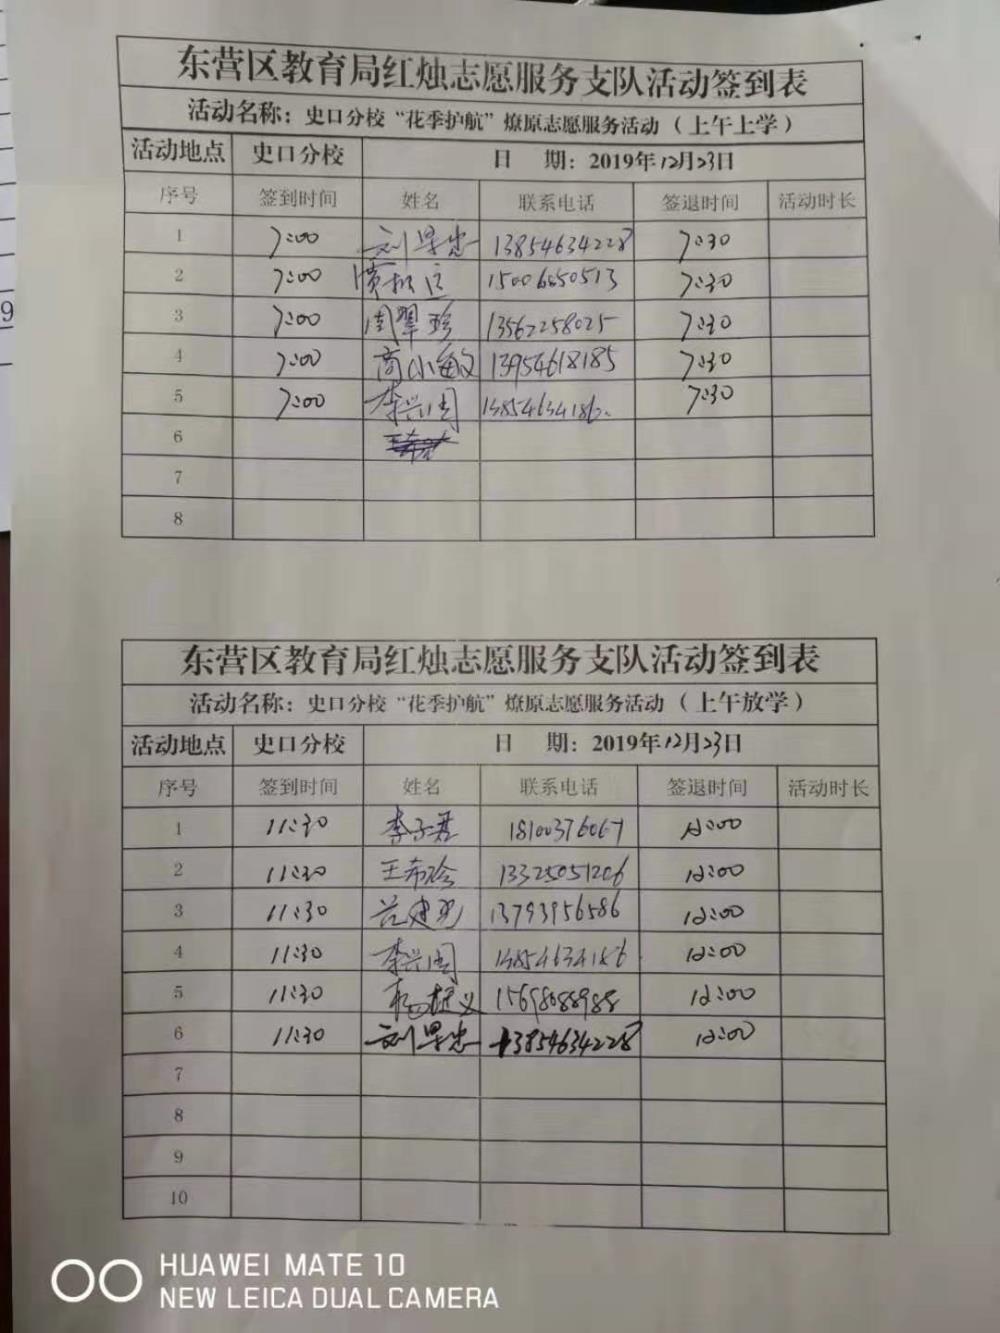 东营区教育局红烛志愿服务支队活动签到表
活动名称：史口分校“花季护航”燎原志愿服务活动（上午上学）
活动地点 史口分校 日 期：2019年12月23日
序号 签到时间 姓名 联系电话 签退时间 活动时长
1 7:00 13854634228 7:30
2 7:00 15006650513 7:30
3 7:00 周翠珍 13562258025 7:30
4 7:00 商小敏 13954618185 7:30
5 7:00 李兴周 7:30
6
7
8
东营区教育局红烛志愿服务支队活动签到表
活动名称：史口分校“花季护航”燎原志愿服务活动（上午放学）
活动地点 史口分校 日 期：2019年12月23日
序号 签到时间 姓名 联系电话 签退时间 活动时长
1 11:30 李子君 18100376067 12:00
2 11:30 王希玲 13325051206 12:00
3 11:30 13793956586 12:00
4 11:30 李兴周 13854634186 12:00
5 11:30 12:00
6 11:30 13854634228 12:00
7
8
9
10
HUAWEI MATE 10
NEW LEICA DUAL CAMERA